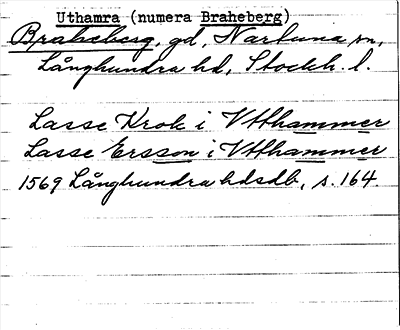 Uthamra (numera Braheberg)
Braheberg, gd, Närtuna sn,
Långhundra hd, Stockh. l.
Lasse Krok i Vtthammer
Lasse Ersson i Vtthammer
1569 Långhundra hdsdb, s. 164.